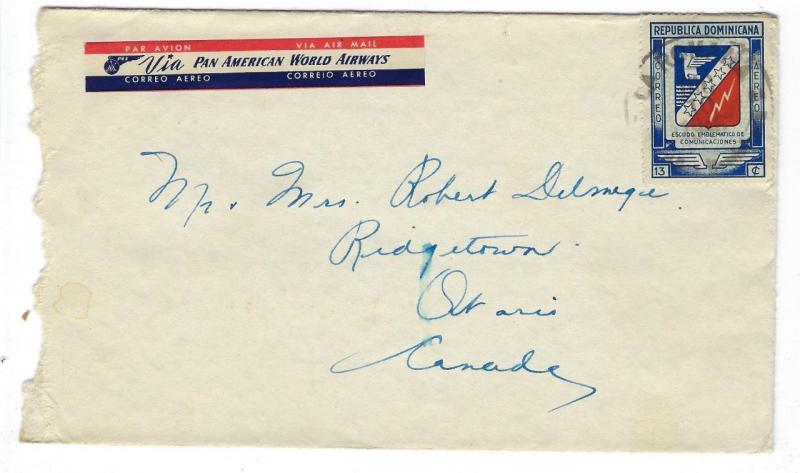 PAR AVION VIA AIR MAIL
Via PAN AMERICAN WORLD AIRWAYS
CORREO AEREO CORREIO AEREO
REPUBLICA DOMINICANA
CORREO
AEREO
ESCUDO EMBLEMATICO DE
COMUNICACIONES
13 ¢
Mr. Mrs. Robert Delmege
Ridgetown
Ontario
Canada